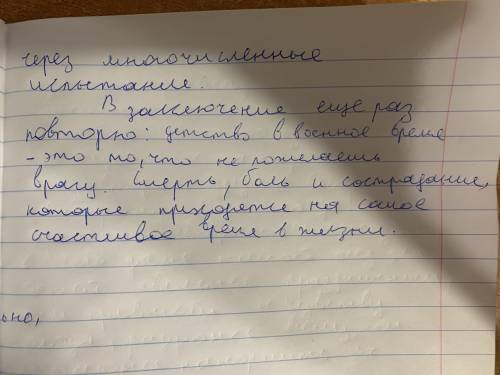 через многочисленные
испытание.
В заключение еще раз
повторю: детство в военное время
- это то, что не пожелаешь
врагу. Смерть, боль и сострадание,
которые приходятся на самое
счастливое время в жизни.
ьно,